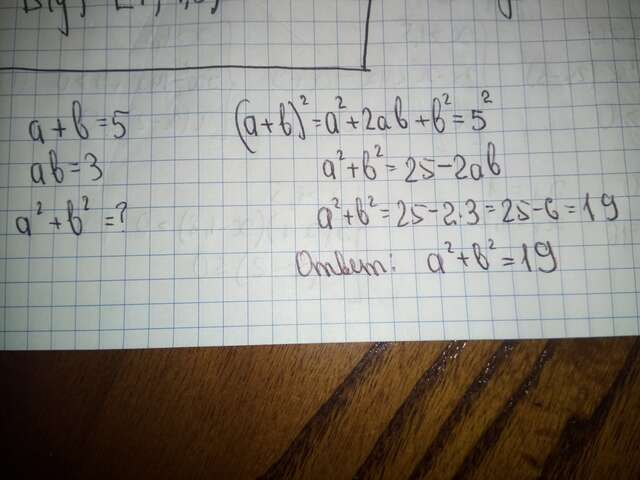 a+b=5
ab=3
a²+b²=?
(a+b)²=a²+2ab+b²=5²
a²+b²=25-2ab
a²+b²=25-2·3=25-6=19
Ответ: a²+b²=19